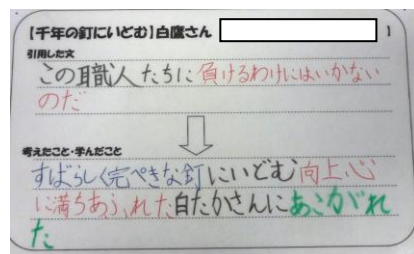 【千年の釘にいどむ】白鷹さん 】
引用した文
この職人たちに負けるわけにはいかない
のだ
考えたこと・学んだこと
すばらしく完ぺきな釘にいどむ向上心
に満ちあふれた白たかさんにあこがれ
た